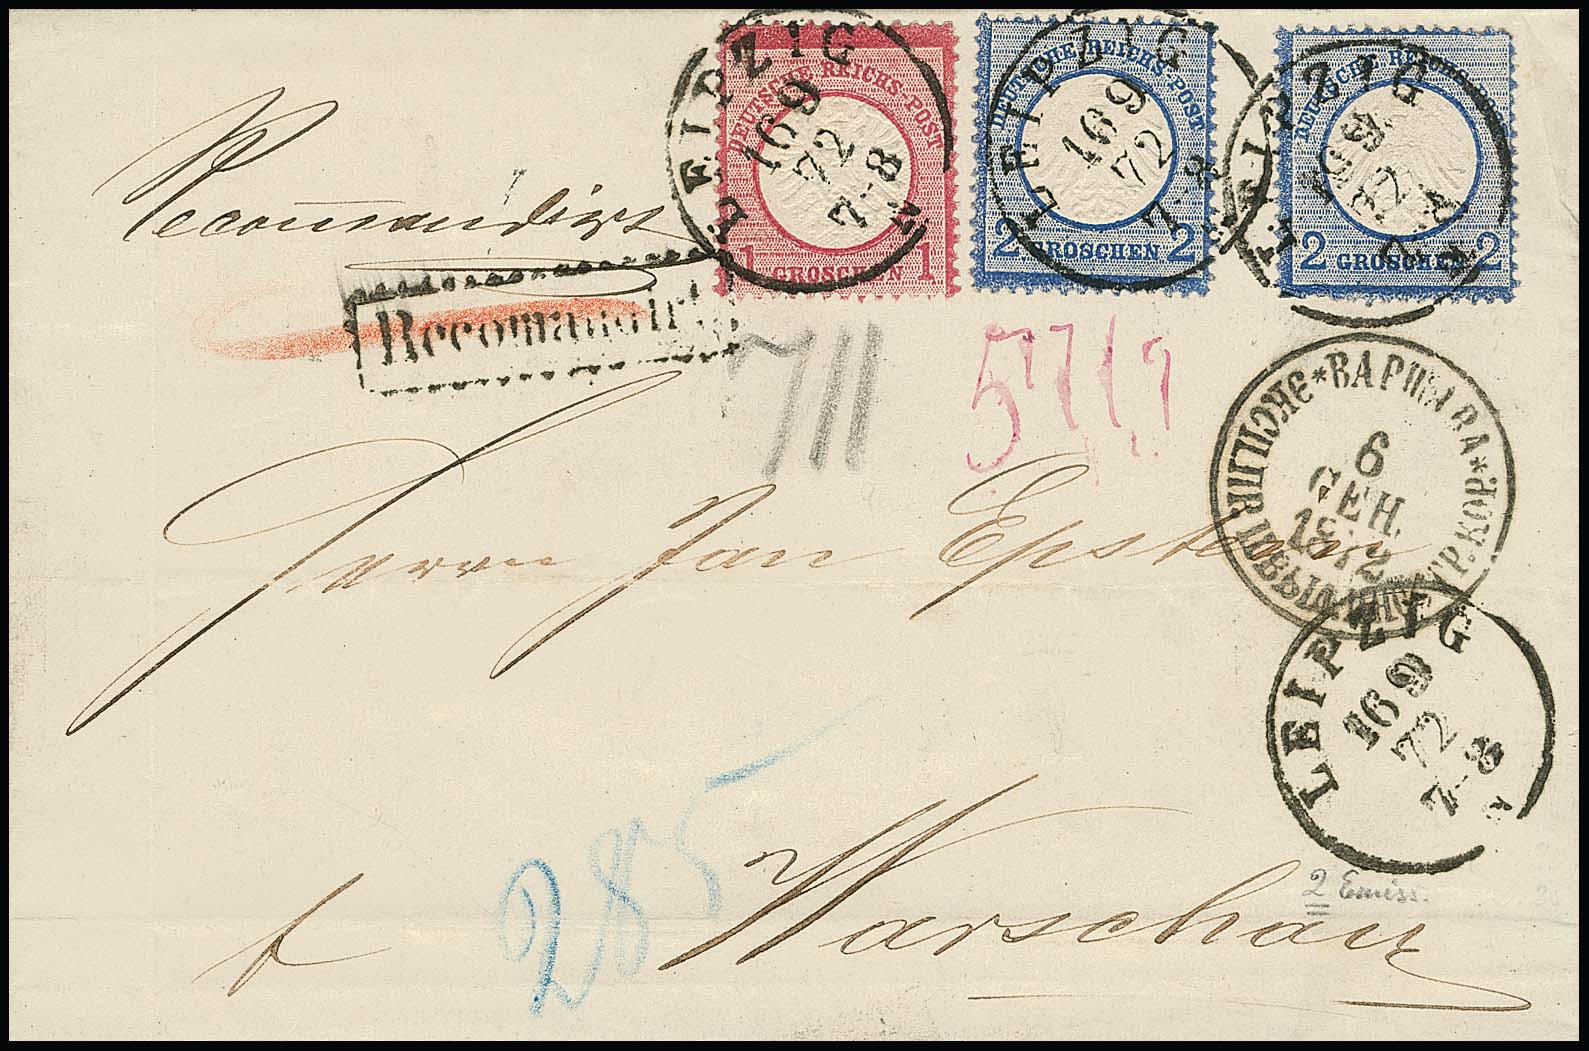 DEUTSCHE REICHS-POST
1 GROSCHEN 1
DEUTSCHE REICHS-POST
2 GROSCHEN 2
DEUTSCHE REICHS-POST
2 GROSCHEN 2
LEIPZIG
16 9
72
7-8
N
LEIPZIG
16 9
72
7-8
LEIPZIG
16 9
72
Recommandirt
Recomandirt
711
ВАРШАВА
6
СЕН.
1872
Herrn Jan Epstein
LEIPZIG
16 9
72
7-8
285
2 Emiss.
Warschau